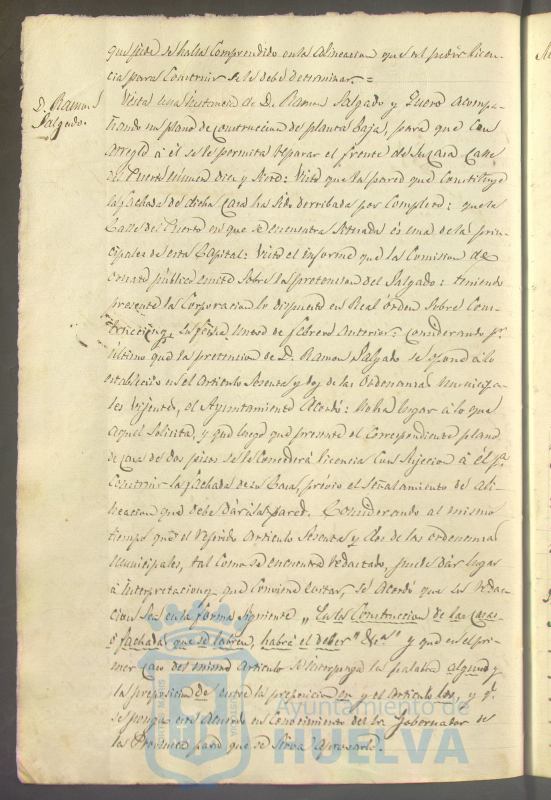 que pide se halla comprendido en la alineacion que al pedir licen-
cia para construir se le debe determinar. =
D. Ramon
Salgado.
Vista una instancia de D. Ramon Salgado y Quero acompa-
ñando un plano de construccion de planta baja, para que con
arreglo á él se le permita reparar el frente de su casa calle
del Puerto número diez y siete: Visto que la pared que constituye
la fachada de dicha casa ha sido derribada por completo: que la
Calle del Puerto en que se encuentra situada es una de las prin-
cipales de esta Capital: Visto el informe que la Comision de
ornato público emite sobre la pretension del Salgado: teniendo
presente la Corporacion lo dispuesto en Real órden sobre cons-
trucciones, su fecha nueve de febrero anterior: Considerando pr.
último que la pretension de D. Ramon Salgado se opone á lo
establecido en el articulo sesenta y dos de las Ordenanzas municipa-
les vijentes, el Ayuntamiento Acordó: No ha lugar á lo que
aquel solicita, y que luego que presente el correspondiente plano
de casa de dos pisos se le concederá licencia con sujecion á él pa.
construir la fachada de su casa, previo el señalamiento de ali-
neacion que debe dar á la pared. Considerando al mismo
tiempo que el referido articulo sesenta y dos de las ordenanzas
municipales, tal como se encuentra redactado, puede dar lugar
á interpretaciones que conviene evitar, se acordó que su redac-
cion sea en la forma siguiente "En la construccion de las casas
ó fachadas que se labren, habrá el deber" &a. y que en el pri-
mer caso del mismo articulo se interponga la palabra alguno y
la preposicion de entre la preposicion en y el articulo los, y qe.
se ponga este acuerdo en conocimiento del Sr. Gobernador de
la Provincia para que se sirva aprobarlo.
Ayuntamiento de
HUELVA